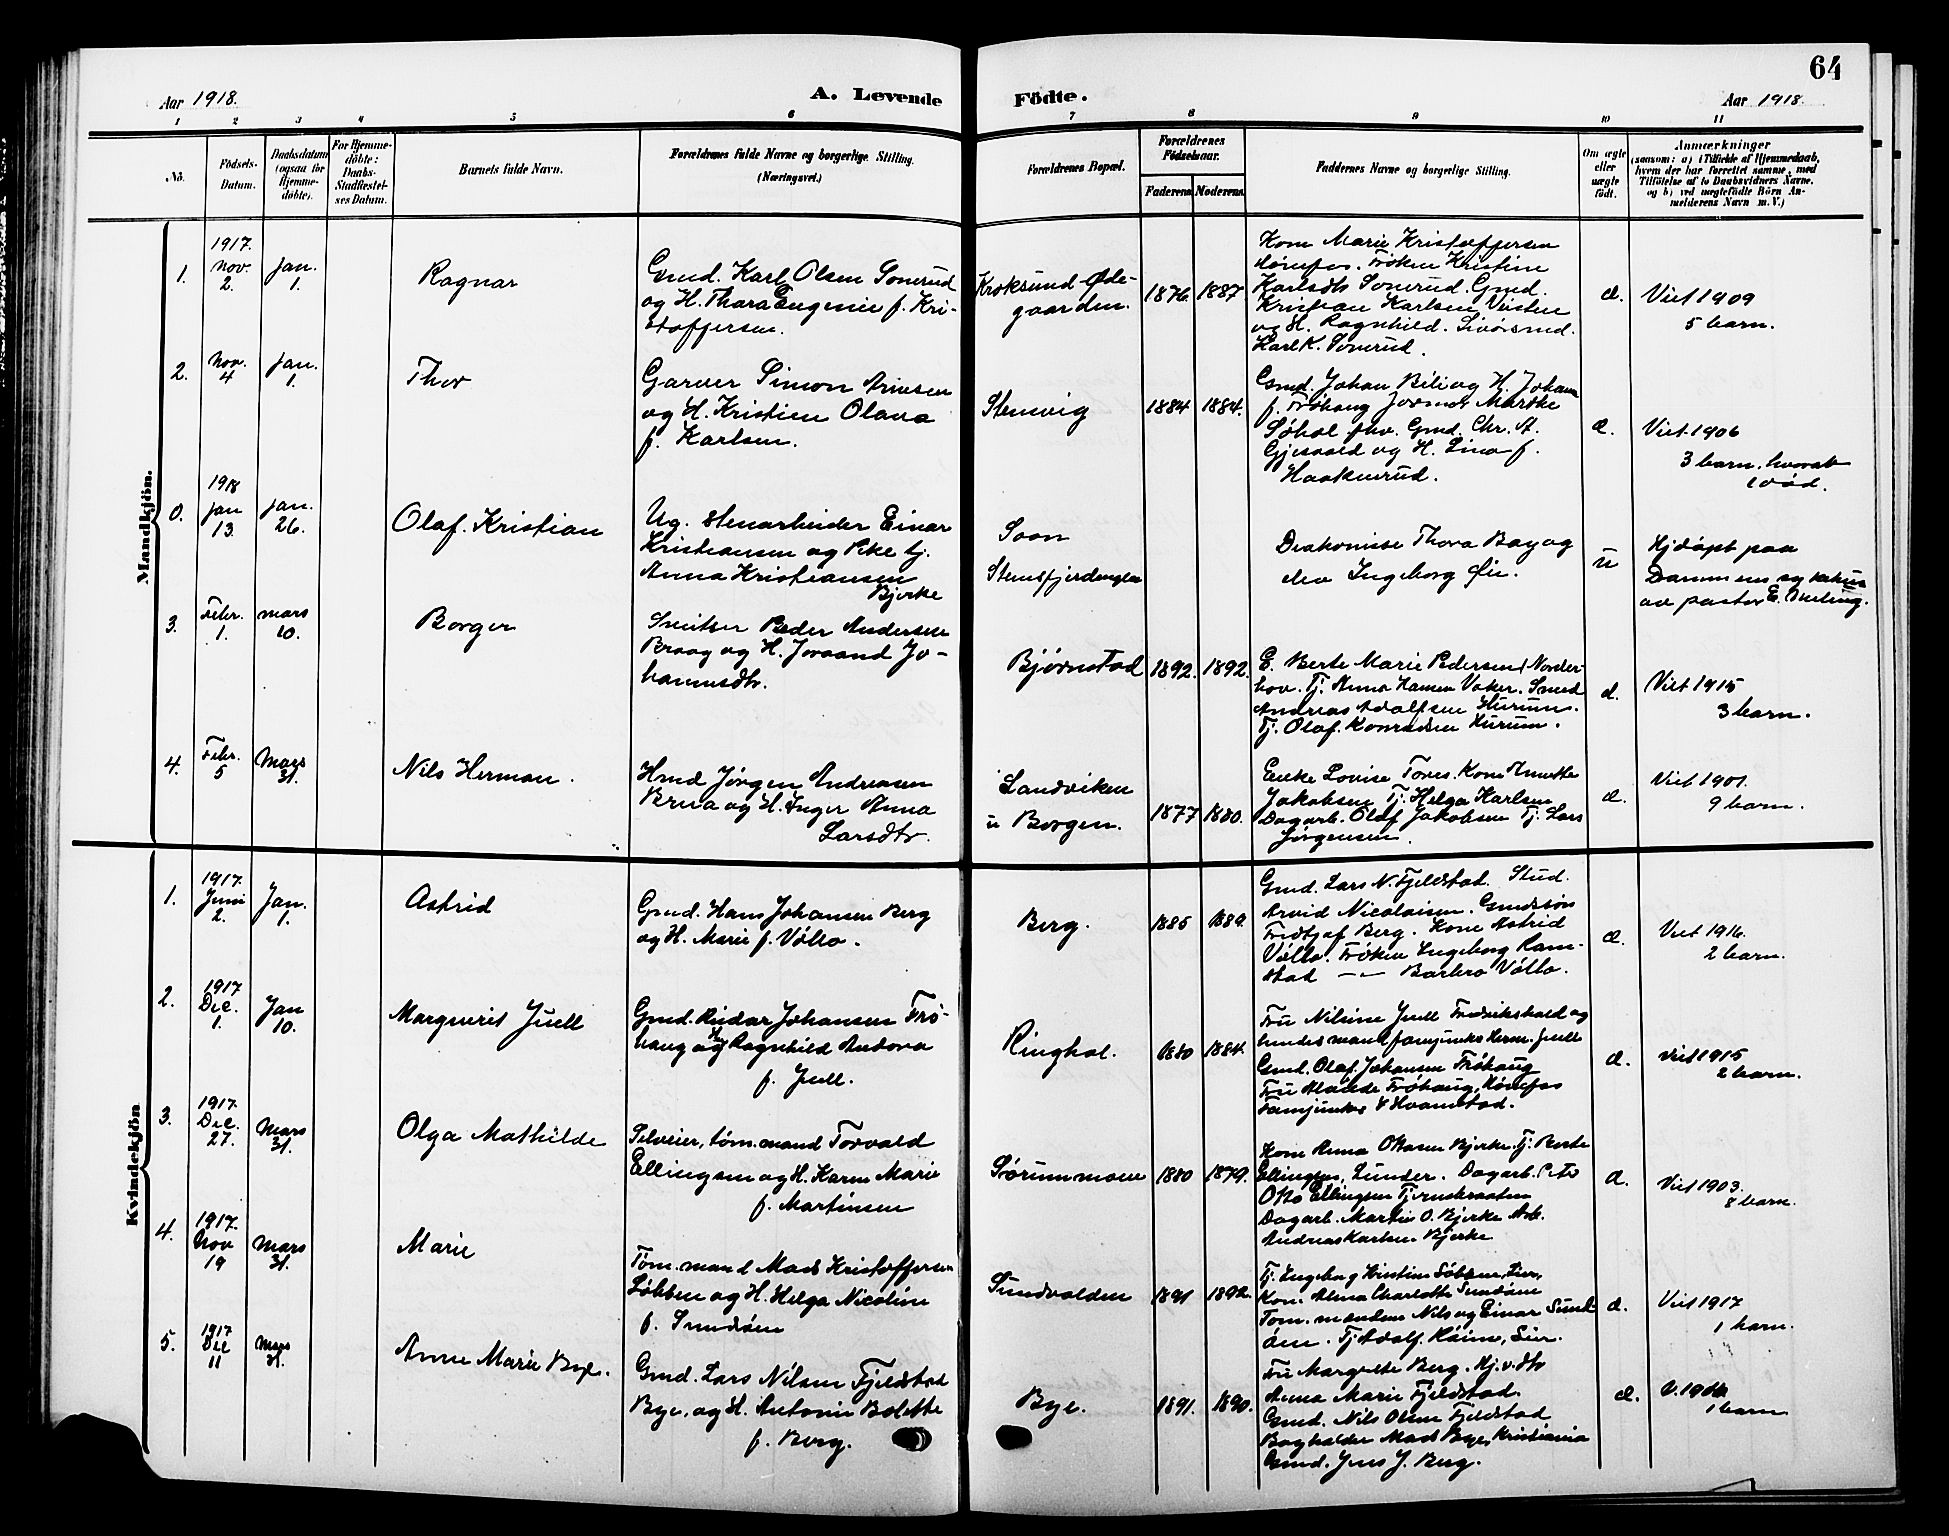 64
Aar 1918.
A. Levende
Födte.
Aar 1918.
1 2 3 4 5 6 7 8 9 10 11
No.
Födsels-
Datum.
Daabsdatum
(ogsaa for
Hjemme-
døbte).
For Hjemme-
døbte:
Daabs-
Stadfæstel-
ses Datum.
Barnets fulde Navn.
Forældrenes fulde Navne og borgerlige Stilling.
(Næringsvei.)
Forældrenes Bopæl.
Forældrenes
Födselsaar.
Faderens
Moderens
Faddernes Navne og borgerlige Stilling.
Om ægte
eller
uægte
født.
Anmærkninger
(saasom: a) i Tilfælde af Hjemmedaab,
hvem der har forrettet samme, med
Tilföielse af to Daabsvidners Navne,
og b) ved uægtefødte Börn An-
melderens Navn m. V.)
Mandkjön.
1.
1917.
Nov.
2.
Jan.
1.
Ragnar
Gmd. Karl Olsen Sonerud
og H. Thara Eugenie f. Kri-
stoffersen.
Kroksund-Øde-
gaarden.
1876 1887
Kone Marie Kristoffersen
Hønefos. Frøken Kristine
Karlsdtr Sonerud. Gmd.
Kristian Karlsen
og H. Ragnhild.
Karl K. Sonerud.
Viet 1909
5 barn.
2.
Nov.
4
Jan.
1.
Thor
Garver Simon
og H. Kristine Olava
f. Karlsen.
Stensvig
1884 1884.
Gmd. Johan Bili og H. Johanne
f. Frøhaug Jordmor Marthe
Søhol. Gmd. Chr. A.
Gjesvold og H. Lina f.
Haakenrud.
Viet 1906
3 barn. hvorav
1 død.
0.
1918
Jan
13.
Jan.
26.
Olaf. Kristian
Ug. Stenarbeider Einar
Kristiansen og Pike tj.
Anna Kristiansen
Bjerke
Soon
Diakonisse Thora Bay og
elev Ingeborg Øie.
u
Hjdøpt paa
Drammens sykehus
av pastor E.
3.
Febr.
1.
Mars
10.
Borger
Sveitser Peder Andersen
Braag og H. Joraand Jo-
hannesdtr.
Bjørnstad
1892. 1892.
E. Berte Marie Pedersen Norder-
hov. Tj. Anna Hansen Vaker. Smed
Andreas Adolfsen Hurum.
Tj. Olaf Konradsen Hurum.
Viet 1915
3 barn.
4.
Febr.
5
Mars
31.
Nils Herman.
Hmd Jørgen Andreasen
og H. Inger Anna
Larsdtr.
Sandviken
u Borgen.
1877 1880.
Enke Lovise Tores. Kone Anette
Jakobsen Tj. Helga Karlsen
Dagarb. Olaf Jakobsen Tj. Lars
Jørgensen.
Viet 1901.
9 barn.
Kvindekjön
1.
1917.
Juni
2.
Jan.
1.
Astrid
Gmd. Hans Johansen Berg
og H. Marie f. Vøllo.
Berg.
1885 1889.
Gmd. Lars N. Fjeldstad. Stud.
Arvid Nicolaisen. Gmdssøn
Fridtjof Berg. Kone Astrid
Vøllo. Frøken Ingeborg Ram-
stad — " — Barbro Vøllo.
Viet 1916.
2 barn.
2.
1917
Dec.
1.
Jan
10.
Marguerit Juell
Gmd. Reidar Johansen Frø-
haug og H Ragnhild Andora
f. Juell.
Ringhol.
1880 1884.
Fru Nilsine Juell Fredrikshald og
lensmand Herm. Juell
Gmd. Olaf Johansen Frøhaug
Fru Frøhaug, Hønefos
Hvamstad.
Viet 1915
2 barn.
3.
1917.
Dec.
27.
Mars
31.
Olga Mathilde
Selveier, tøm.mand Torvald
Ellingsen og H. Karen Marie
f. Martinsen
Sørummoen
1880 1879.
Kone Anna Ottosen Bjerke. Tj. Berte
Ellingsen, Lunder. Dagarb.
Otto Ellingsen
Dagarb. Martin O. Bjerke Arb.
Andreas Karlsen Bjerke
Viet 1903.
8 barn.
4.
1917.
Nov
19
Mars
31.
Marie
Tøm.mand Mads Kristoffersen
Løbben og H. Helga Nicoline
f. Sundøen
Sundvolden
1891 1892.
Tj. Ingeborg Kristine Løbben, Lier,
Kone Alma Charlotte Sundøen
Tøm.mændene Nils og Einar Sund-
øen. Tj Adolf Lier.
Viet 1917
1 barn.
5.
1917
Dec
11
Mars
31.
Anne Marie Bye.
Gmd. Lars Nilsen Fjeldstad
Bye, og H. Antonie Bolette
f. Berg.
Bye.
1891. 1890.
Fru Margrete Berg. Hj.v. dtr
Anna Marie Fjeldstad.
Gmd. Nils Olsen Fjeldstad
Bogholder Mads Bye, Kristiania
Gmd. Jens J. Berg.
1 barn